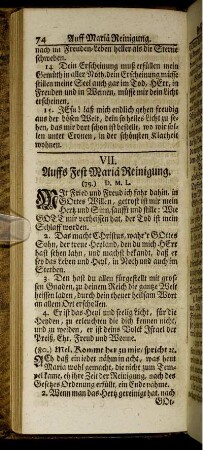 74 Auff Mariä Reinigung.
nach im Freuden-Leben heller als die Sterne
schweben.
14. Dein Erscheinung muß erfüllen mein
Gemüth in aller Noth, dein Erscheinung müsse
stillen meine Seel auch gar im Tod. HErr, in
Freuden und in Weinen, müsse mir dein Licht
erscheinen.
15. JEsu! laß mich endlich gehen freudig
aus der bösen Welt, dein so helles Licht zu se-
hen, das mir dort schon ist bestellt, wo wir sol-
len unter Cronen, in der schönsten Klarheit
wohnen.
VII.
Auffs Fest Mariä Reinigung.
(79.) D. M. L.
MIt Fried und Freud ich fahr dahin, in
GOttes Willen, getrost ist mir mein
Hertz und Sinn, sanfft und stille: Wie
GOTT mir verheissen hat, der Tod ist mein
Schlaff worden.
2. Das macht CHristus, wahr'r GOttes
Sohn, der treue Heyland, den du mich HErr
hast sehen lahn, und machst bekandt, daß er
sey das Leben und Heyl, in Noth und auch im
Sterben.
3. Den hast du allen fürgestellt mit gros-
sen Gnaden, zu deinem Reich die gantze Welt
heissen laden, durch dein theuer heilsam Wort
an allem Ort erschollen.
4. Er ist das Heyl und seelig Licht, für die
Heyden, zu erleuchten die dich kennen nicht,
und zu weiden, er ist deins Volck Israel der
Preiß, Ehr, Freud und Wonne.
(80.) Mel. Kommt her zu mir, spricht ꝛc.
ACh daß ein jeder nähm in acht, was heut
Maria wohl gemacht, die nicht zum Tem-
pel kame, eh ihr Zeit der Reinigung, nach des
Gesetzes Ordenung erfüllt, ein End nahme.
2. Wenn man das Hertz gereinigt hat, nach